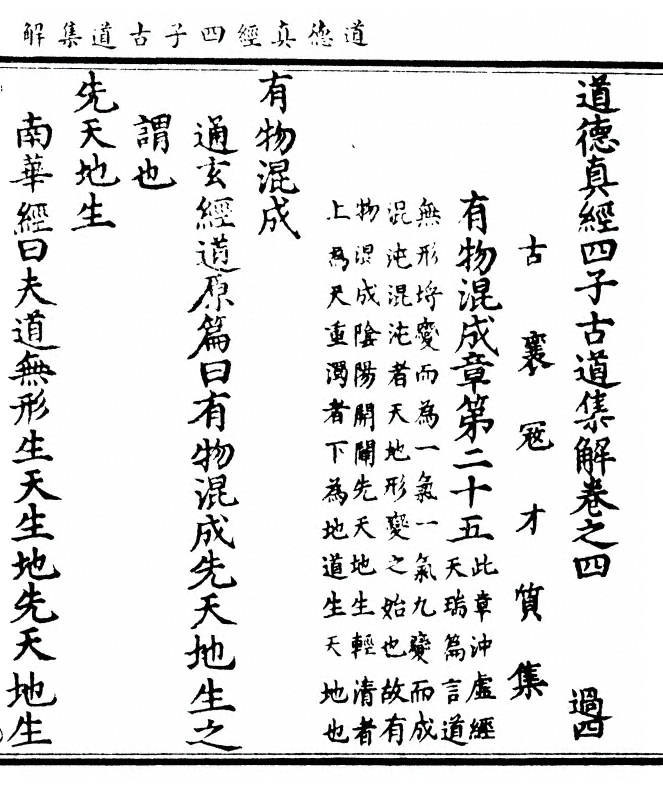 道德真經四子古道集解
道德真經四子古道集解卷之四 過四
古襄寇才質集
有物混成章第二十五 此章沖虛經
天瑞篇言道
無形埒變而為一氣一氣九變而成
混沌混沌者天地形變之始也故有
物混成陰陽開闡先天地生輕清者
上為天重濁者下為地道生天地也
有物混成
通玄經道原篇曰有物混成先天地生之
謂也
先天地生
南華經曰夫道無形生天生地先天地生